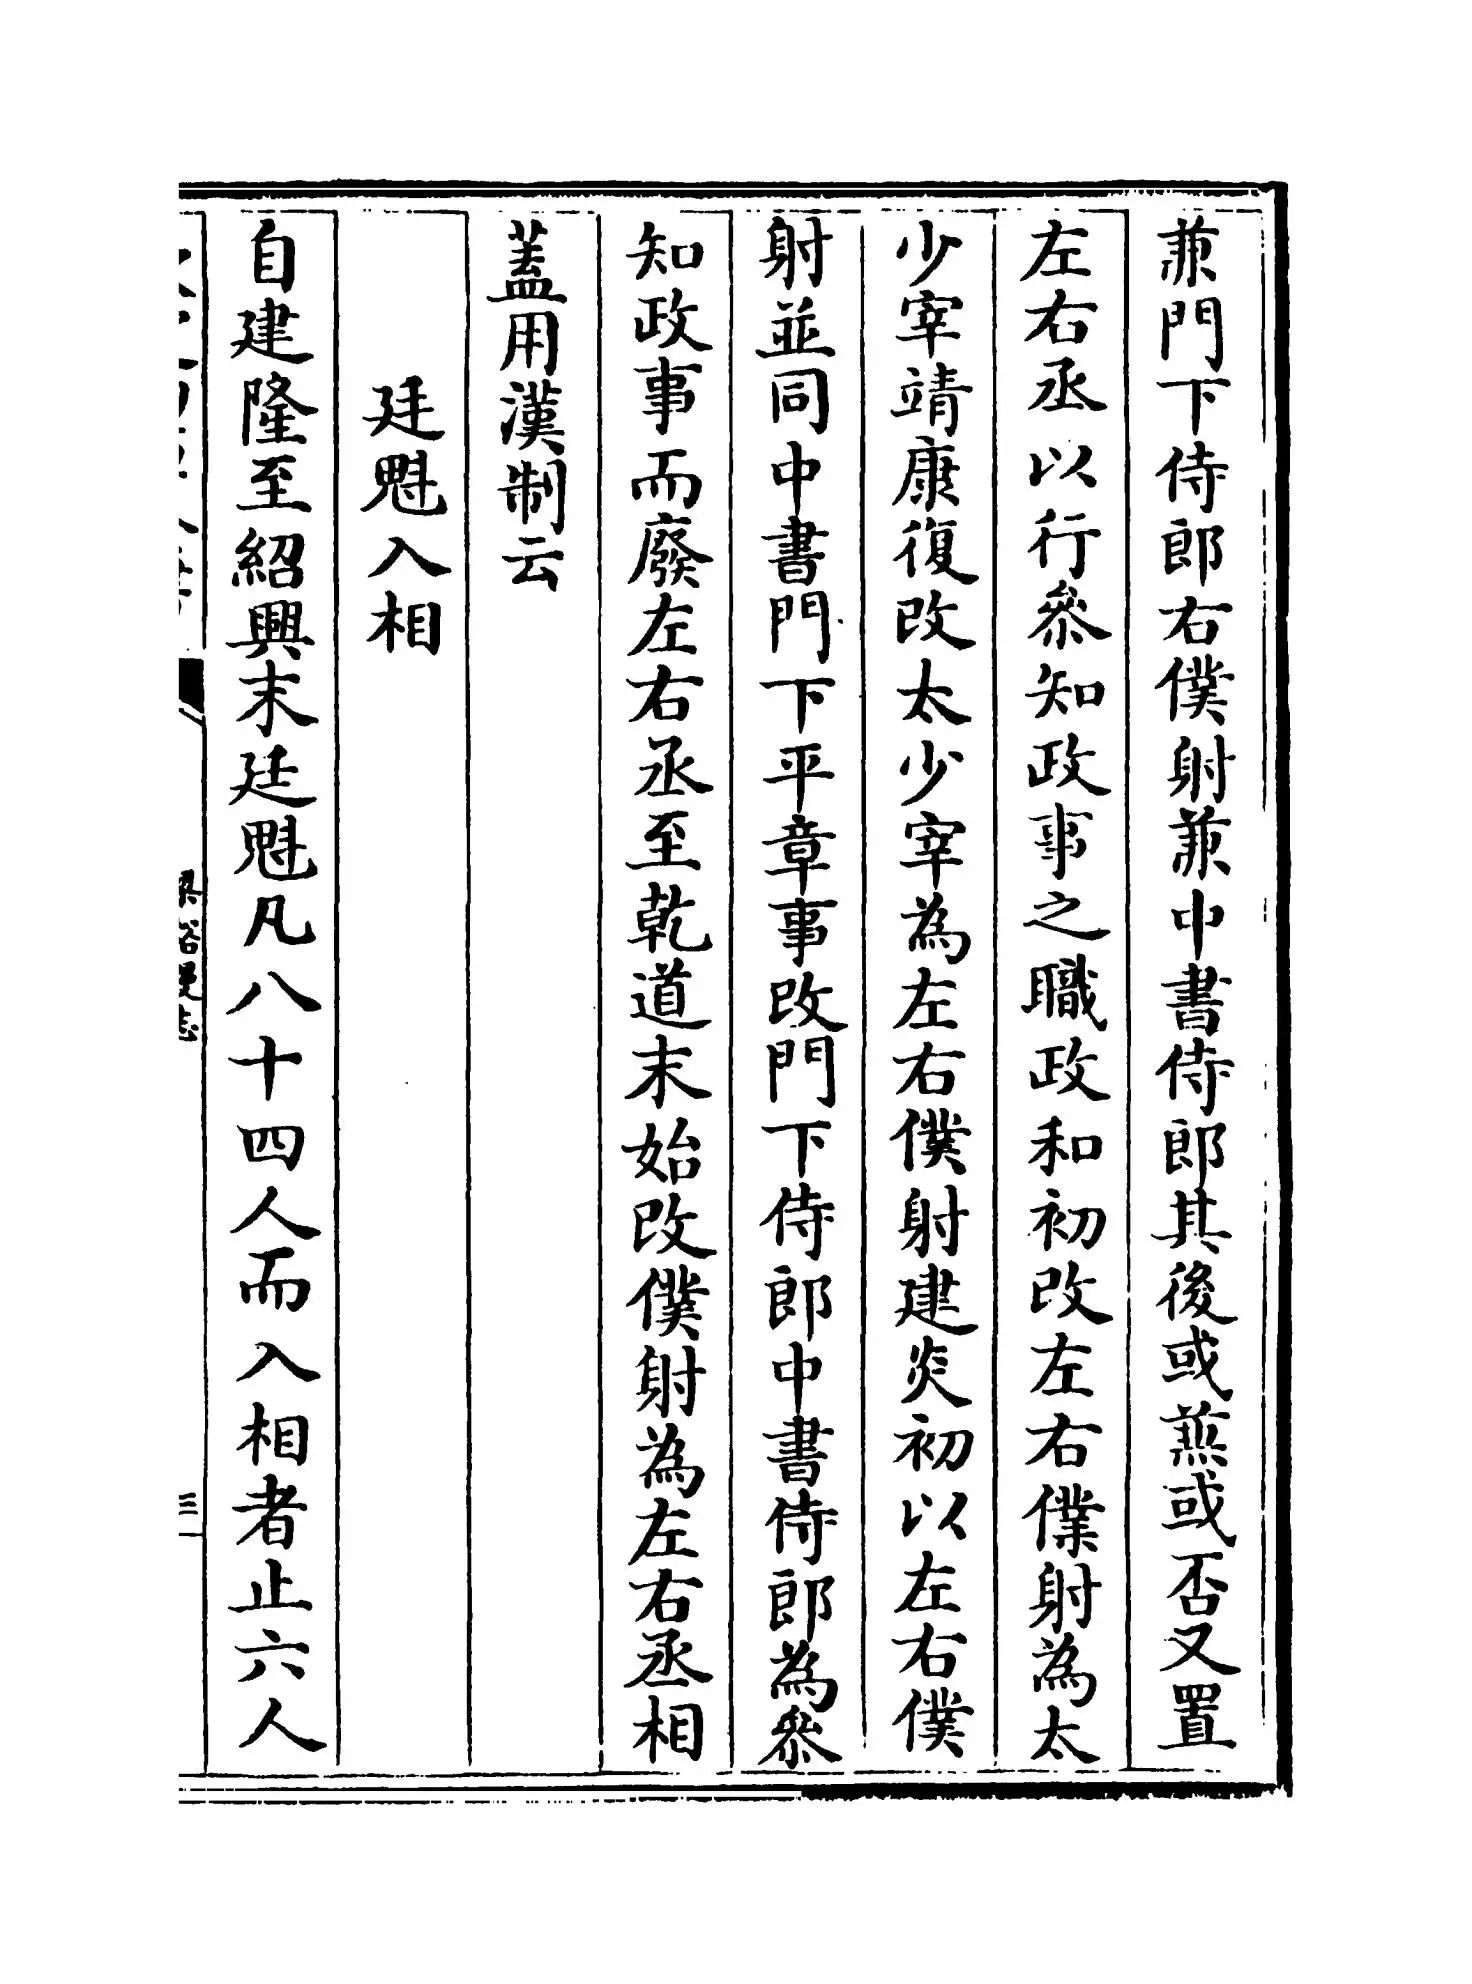 兼門下侍郎右僕射兼中書侍郎其後或兼或否又置
左右丞以行叅知政事之職政和初改左右僕射為太
少宰靖康復改太少宰為左右僕射建炎初以左右僕
射並同中書門下平章事改門下侍郎中書侍郎為叅
知政事而廢左右丞至乾道末始改僕射為左右丞相
蓋用漢制云
廷魁入相
自建隆至紹興末廷魁凡八十四人而入相者止六人
梁谿漫志
三